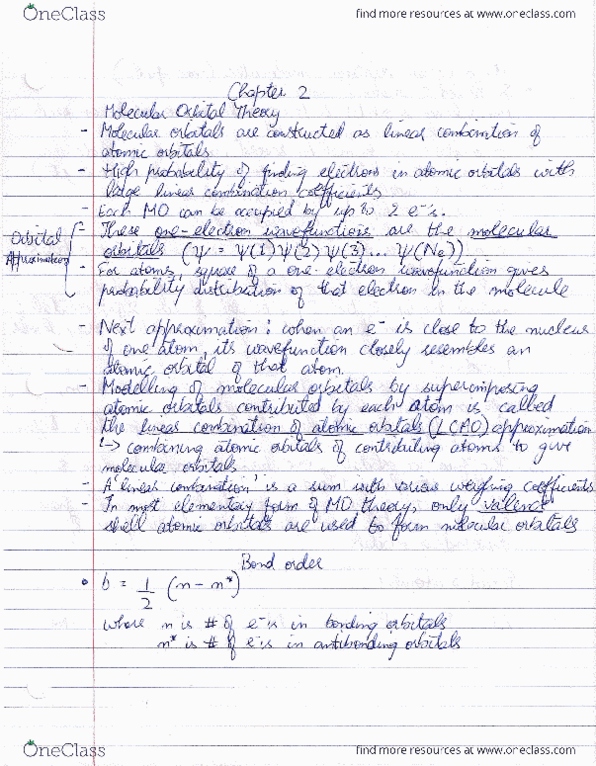 OneClass
find more resources at www.oneclass.com
Chapter 2
Molecular Orbital Theory
- Molecular orbitals are constructed as linear combination of
atomic orbitals
- High probability of finding electrons in atomic orbitals with
large linear combination coefficients
- Each MO can be occupied by up to 2 e-'s.
Orbital
Approximation
- These one-electron wavefunctions are the molecular
orbitals (Ψ = Ψ(1)Ψ(2)Ψ(3)... Ψ(Ne))
- For atoms, square of a one-electron wavefunction gives
probability distribution of that electron in the molecule
- Next approximation: when an e- is close to the nucleus
of one atom, its wavefunction closely resembles an
atomic orbital of that atom.
- Modelling of molecular orbitals by superimposing
atomic orbitals contributed by each atom is called
the linear combination of atomic orbitals (LCMO) approximation
↳ combining atomic orbitals of contributing atoms to give
molecular orbitals
- A 'linear combination' is a sum with various weighing coefficients
- In most elementary form of MO theory, only valence
shell atomic orbitals are used to form molecular orbitals
Bond order
• b = 1/2 (n - n*)
where n is # of e-'s in bonding orbitals
n* is # of e-'s in antibonding orbitals
OneClass
find more resources at www.oneclass.com